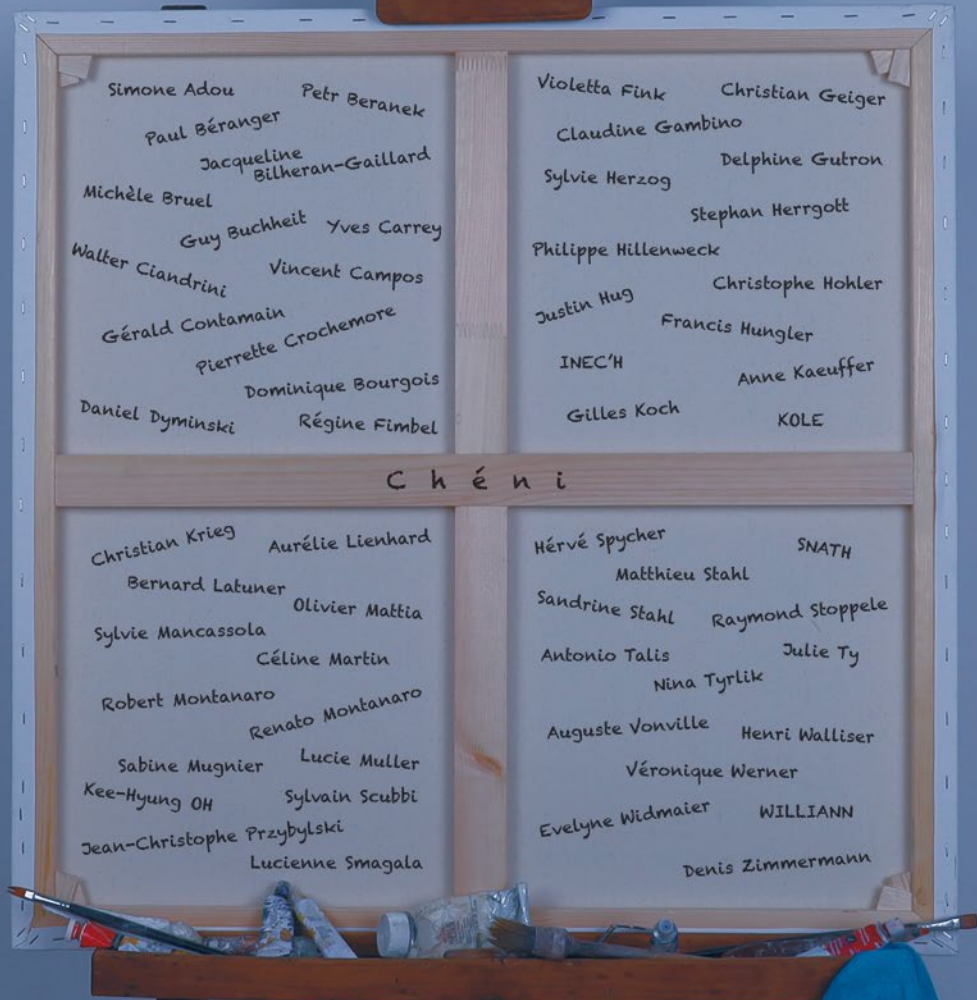 Simone Adou
Petr Beranek
Paul Béranger
Jacqueline
Bilheran-Gaillard
Michèle Bruel
Guy Buchheit
Yves Carrey
Walter Ciandrini
Vincent Campos
Gérald Contamain
Pierrette Crochemore
Dominique Bourgois
Daniel Dyminski
Régine Fimbel
Violetta Fink
Christian Geiger
Claudine Gambino
Delphine Gutron
Sylvie Herzog
Stephan Herrgott
Philippe Hillenweck
Christophe Hohler
Justin Hug
Francis Hungler
INEC'H
Anne Kaeuffer
Gilles Koch
KOLE
Chéni
Christian Krieg
Aurélie Lienhard
Bernard Latuner
Olivier Mattia
Sylvie Mancassola
Céline Martin
Robert Montanaro
Renato Montanaro
Sabine Mugnier
Lucie Muller
Kee-Hyung OH
Sylvain Scubbi
Jean-Christophe Przybylski
Lucienne Smagala
Hérvé Spycher
SNATH
Matthieu Stahl
Sandrine Stahl
Raymond Stoppele
Antonio Talis
Julie Ty
Nina Tyrlik
Auguste Vonville
Henri Walliser
Véronique Werner
Evelyne Widmaier
WILLIANN
Denis Zimmermann